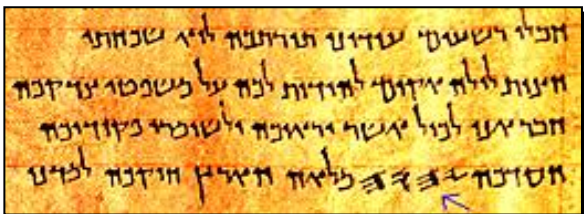 חבלי רשעים עודוני תורתכה לוא שכחתי
חצות לילה אקום להודות לכה על משפטי צדקכה
חבר אני לכול אשר יראוכה ולשומרי פקודיכה
חסדכה 𐤉𐤄𐤅𐤄 מלאה הארץ חוקכה למדני